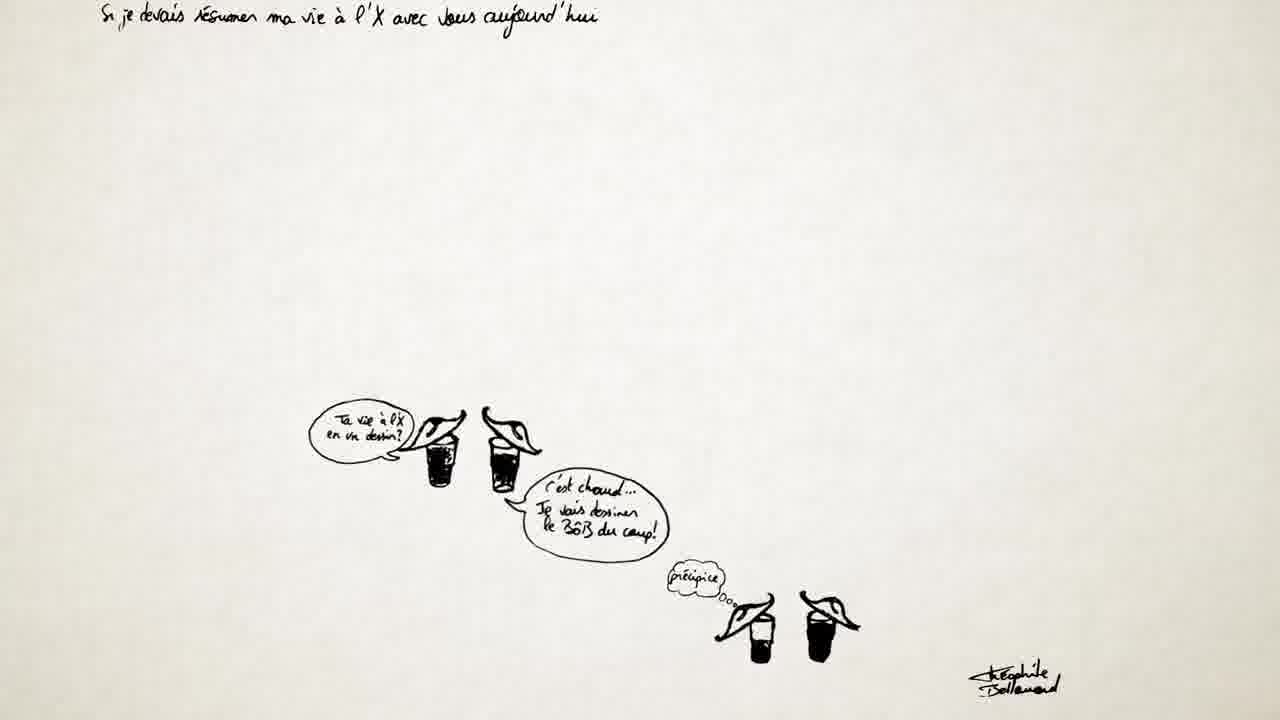 Si je devais résumer ma vie à l'X avec vous aujourd'hui
Ta vie à l'X
en un dessin?
c'est chaud...
Je vais dessiner
le BôB du coup!
précipice
Théophile